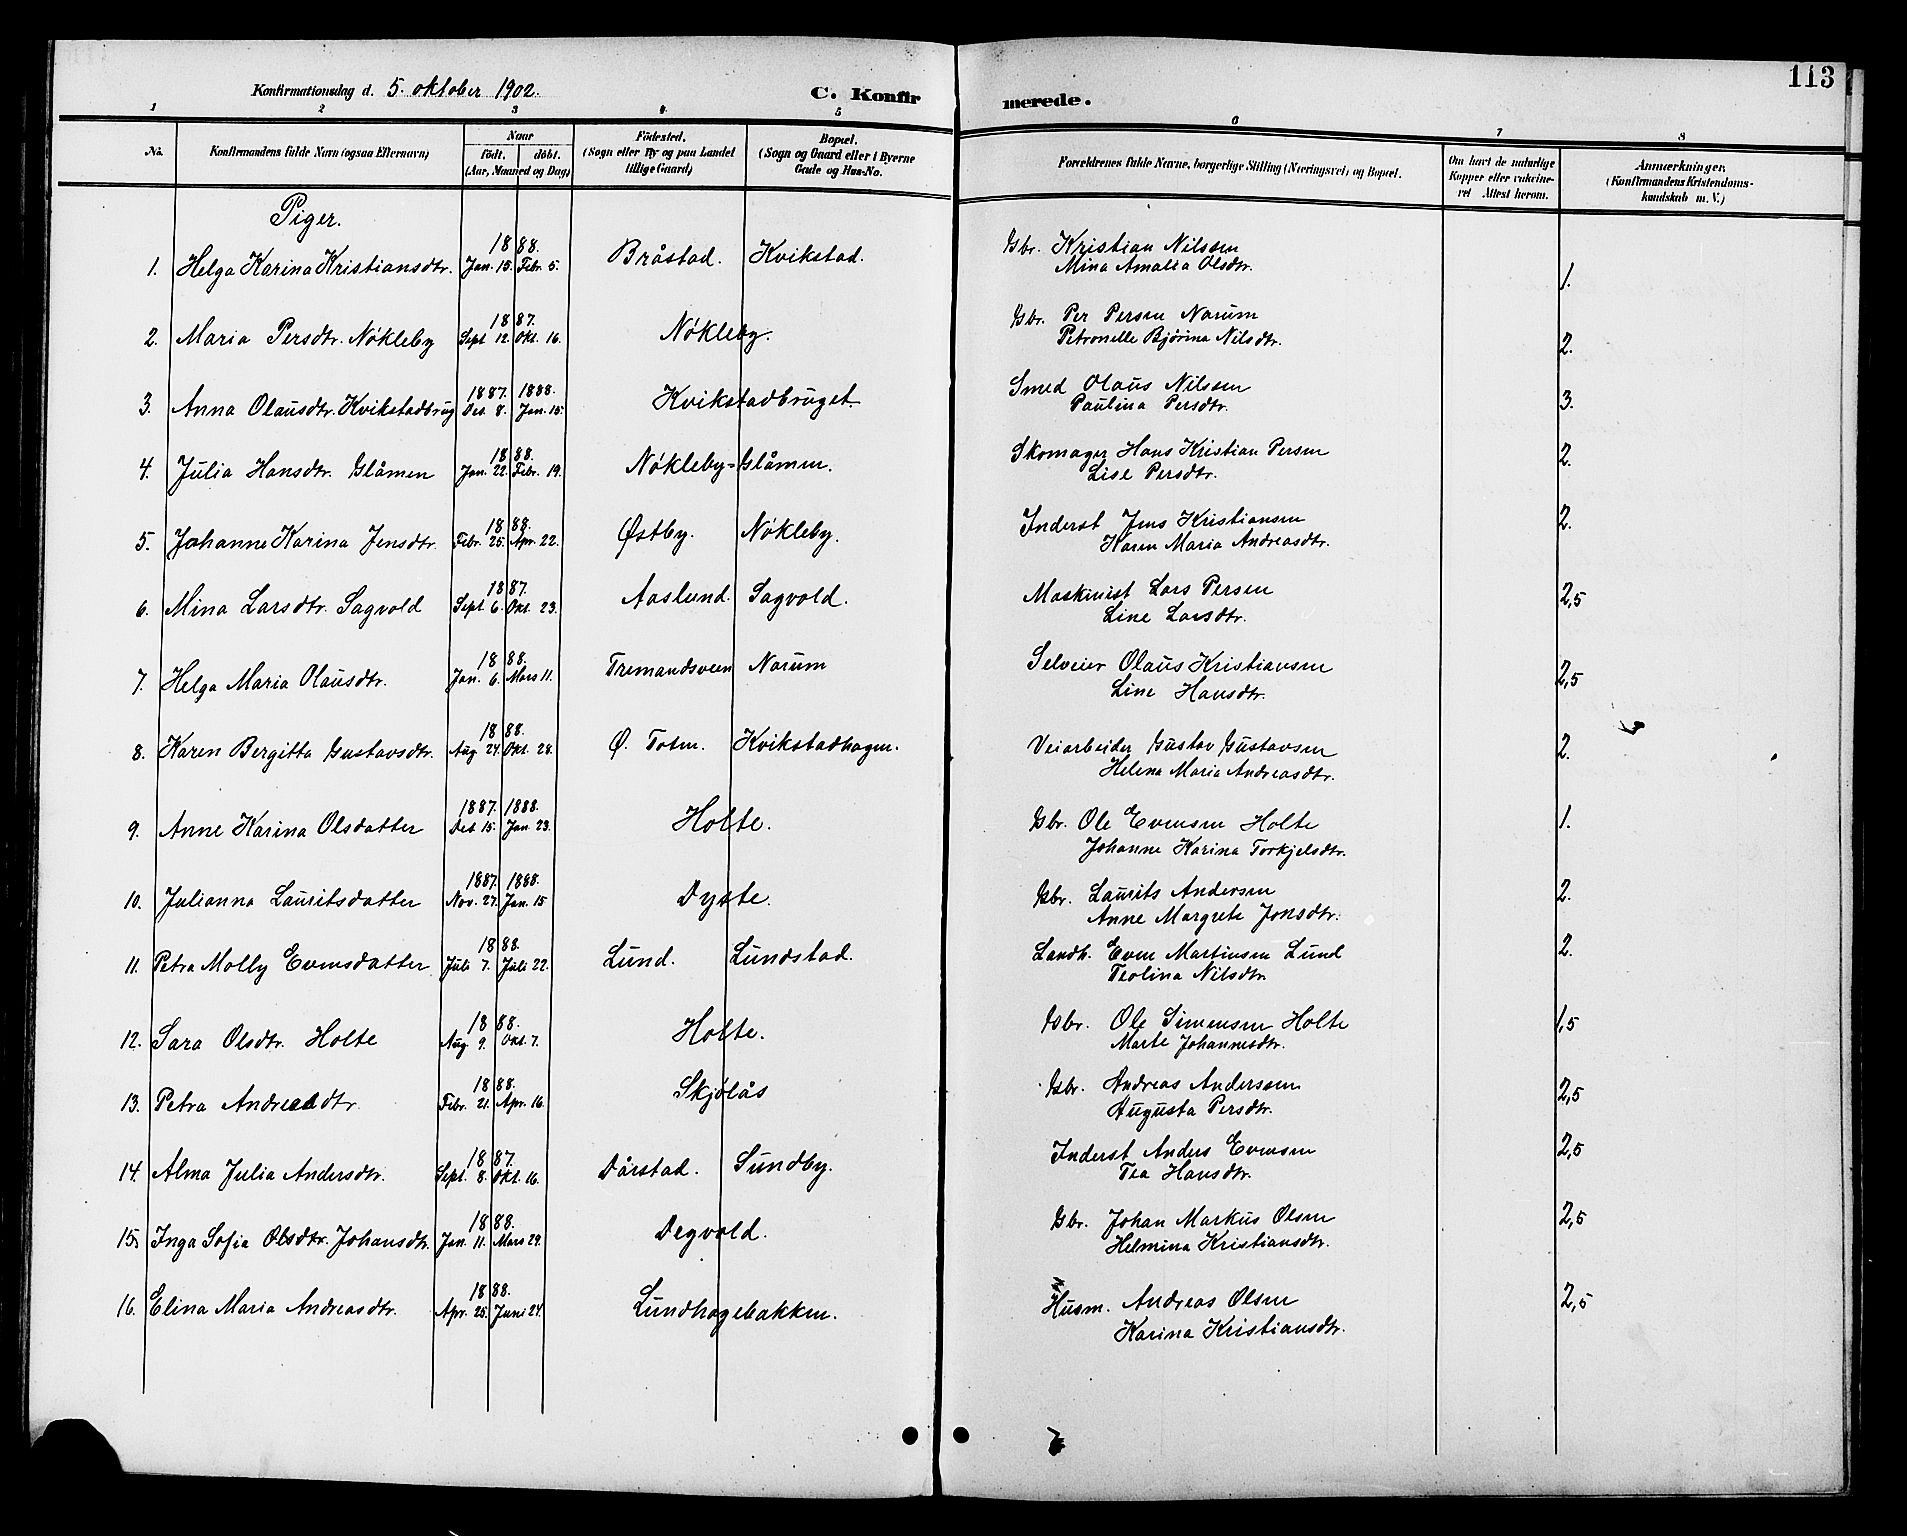 113
Konfirmationsdag d. 5. oktober 1902.
C. Konfirmerede.
1 2 3 4 5 6 7 8
No. Konfirmandens fulde Navn (ogsaa Efternavn) Naar født. døbt. (Aar, Maaned og Dag) Fødested. (Sogn eller By og paa Landet tillige Gaard) Bopæl. (Sogn og Gaard eller i Byerne Gade og Hus-No. Forældrenes fulde Navne, borgerlige Stilling (Næringsvei) og Bopæl. Om havt de naturlige Kopper eller vaccineret Attest herom. Anmærkninger. (Konfirmandens Kristendomskundskab m. V.)
Piger.
1. Helga Karina Kristiansdtr. 1888. Jan. 15. Febr. 5. Bråstad. Kvikstad. Gbr. Kristian Nilssen 1.
Mina Amalia Olsdtr.
2. Maria Persdtr. Nökleby 1887. Sept 12. Okt. 16. Nökleby. Gbr. Per Persen Narum 2.
Petronelle Bjørina Nilsdtr.
3. Anna Olausdtr. Kvikstadbrug 1887. Des 8. 1888. Jan. 15. Kvikstadbruget. Smed Olaus Nilssen 3.
Paulina Persdtr.
4. Julia Hansdtr. Glåmen 1888. Jan. 22. Febr. 19. Nökleby-Glåmen. Skomager Hans Kristian Persen 2.
Lise Persdtr.
5. Johanne Karina Jensdtr. 1888. Febr. 25. Apr. 22. Østby. Nökleby. Inderst Jens Kristiansen 2.
Karen Maria Andreasdtr.
6. Mina Larsdtr. Sagvold 1887. Sept 6. Okt. 23. Aaslund. Sagvold. Maskinist Lars Persen 2,5
Line Larsdtr.
7. Helga Maria Olausdtr. 1888. Jan. 6. Mars 11. Tremandsveen Narum Selveier Olaus Kristiansen 2,5
Line Hansdtr.
8. Karen Bergitta Gustavsdtr. 1888. Aug 24. Okt. 28. Ø. Toten. Kvikstadhagen. Veiarbeider Gustav Gustavsen 2.
Helena Maria Andreasdtr.
9. Anne Karina Olsdatter 1887. Des 15. 1888. Jan. 23. Holte. Gbr. Ole Evensen Holte 1.
Johanne Karina Torkjelsdtr.
10. Julianna Lauritsdatter 1887. Nov. 27. 1888. Jan. 15 Dyste. Gbr. Laurits Andersen 2.
Anne Margrete Jonsdtr.
11. Petra Molly Evensdatter 1888. Juli 7. Juli 22. Lund. Lundstad. Landh. Even Martinsen Lund 2.
Teolina Nilsdtr.
12. Sara Olsdtr. Holte 1888. Aug 9. Okt. 7. Holte. Gbr. Ole Simensen Holte 1,5
Marte Johannesdtr.
13. Petra Andreasdtr. 1888. Febr. 21. Apr. 16. Skjølås Gbr. Andreas Anderssen 2,5
Augusta Persdtr.
14. Alma Julia Andersdtr. 1887. Sept. 8. Okt. 16. Dårstad. Sundby. Inderst Anders Evensen 2,5
Tea Hansdtr.
15. Inga Sofia Olsdtr. Johansdtr. 1888. Jan. 11. Mars 29. Degvold. Gbr. Johan Markus Olsen 2,5
Helmina Kristiansdtr.
16. Elina Maria Andreasdtr. 1888. Apr. 25. Juni 24. Lundhagebakken. Husm. Andreas Olsen 2,5
Karina Kristiansdtr.